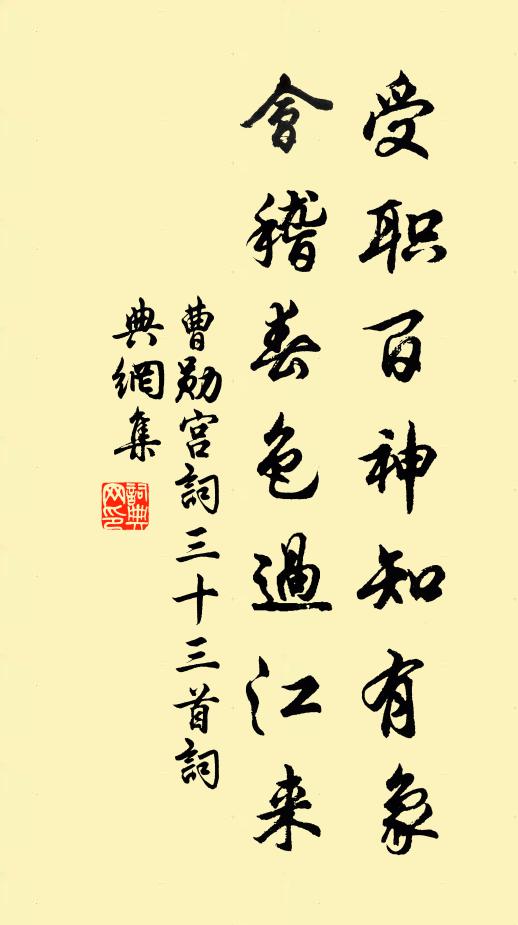 受职百神知有象
會稽春色過江来
曹勋宫詞三十三首詞
典網集
詞典网印